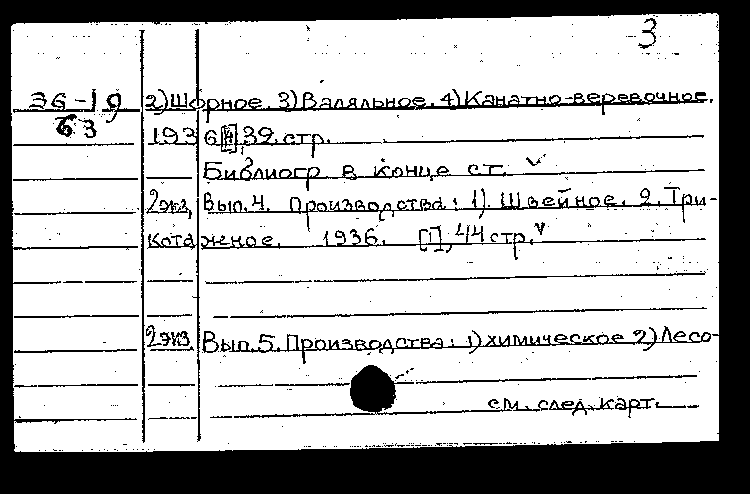 3
36-19 2) Шорное. 3) Валяльное. 4) Канатно-веревочное.
63 1936 39 стр.
Библиогр в конце ст. V
2экз. Вып. 4. Производства: 1). Швейное. 2. Три-
котажное. 1936. [1], 44 стр. V
2экз. Вып. 5. Производства: 1) химическое 2) Лесо-
см. след. карт.